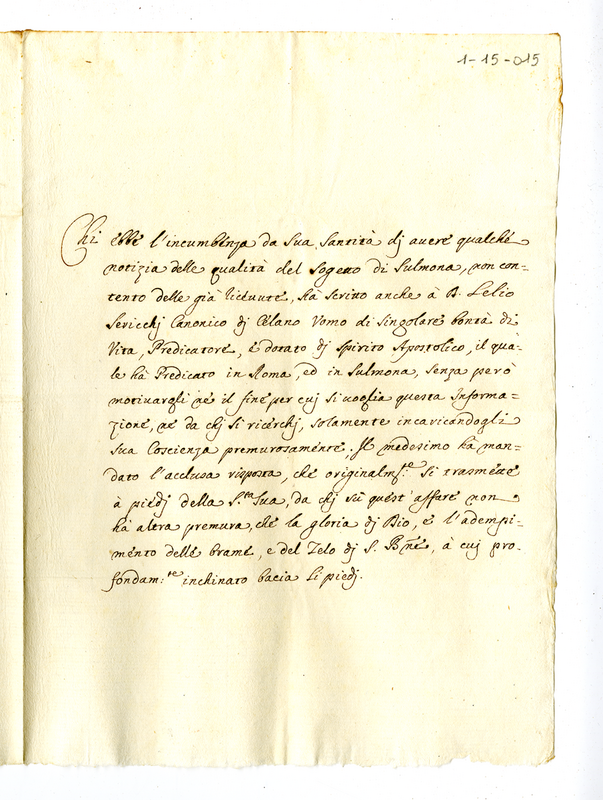 1-15-015
Chi ebbe l'incumbenza da Sua Santità dj avere qualche
notizia delle qualità del Sogetto di Sulmona, non con=
tento delle già ricevute, hà Scritto anche à D. Lelio
Sericchj Canonico dj Celano Vomo di Singolare bontà di
Vita, Predicatore, e dotato dj Spirito Apostolico, il qua=
le hà Predicato in Roma, ed in Sulmona, senza però
motivargli nè il fine per cuj Si voglia questa Informa=
zione, nè da chj Si ricerchj, solamente incaricandogli
sua Coscienza premurosamente. Il medesimo hà man=
dato l'acclusa risposta, che originalm:te Si trasmette
à piedj della S.tà Sua, da chj sù quest'affare non
hà altra premura, che la gloria dj Dio, e l'adempi=
mento delle brame, e del Zelo dj S. Bne, à cuj pro=
fondam:te inchinato bacia li piedj.